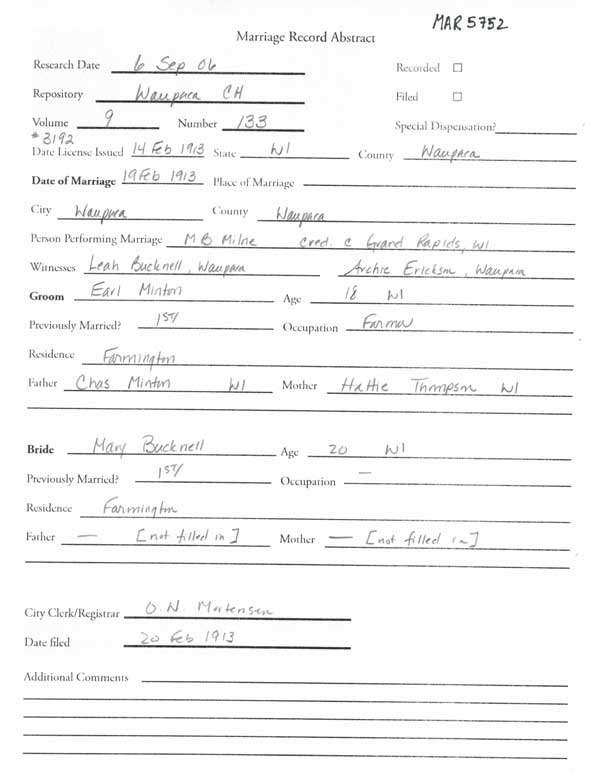 MAR 5752
Marriage Record Abstract
Research Date 6 Sep 06 Recorded
Repository Waupaca CH Filed
Volume 9 Number 133 Special Dispensation?
#3192
Date License Issued 14 Feb 1913 State WI County Waupaca
Date of Marriage 19 Feb 1913 Place of Marriage
City Waupaca County Waupaca
Person Performing Marriage M B Milne cred. c Grand Rapids, WI
Witnesses Leah Bucknell, Waupaca Archie Erickson, Waupaca
Groom Earl Minton Age 18 WI
Previously Married? 1st/ Occupation Farmer
Residence Farmington
Father Chas Minton WI Mother Hattie Thompson WI
Bride Mary Bucknell Age 20 WI
Previously Married? 1st/ Occupation —
Residence Farmington
Father — [not filled in] Mother — [not filled in]
City Clerk/Registrar O. N. Mortensen
Date filed 20 Feb 1913
Additional Comments